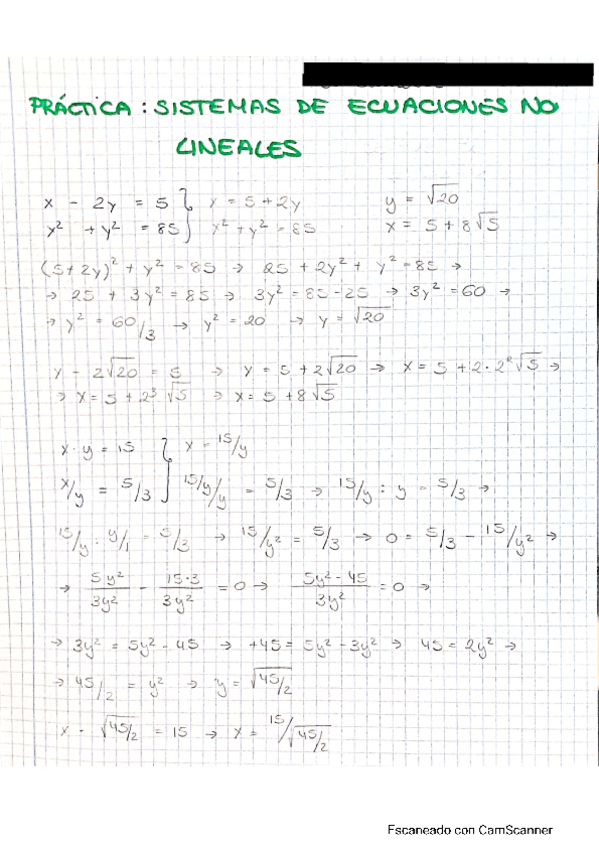 PRÁCTICA: SISTEMAS DE ECUACIONES NO
LINEALES
x - 2y = 5 } x = 5 + 2y y = √20
x² + y² = 85 } x² + y² = 85 x = 5 + 8√5
(5 + 2y)² + y² = 85 → 25 + 2y² + y² = 85 →
→ 25 + 3y² = 85 → 3y² = 85 - 25 → 3y² = 60 →
→ y² = 60/3 → y² = 20 → y = √20
x - 2√20 = 5 → x = 5 + 2√20 → x = 5 + 2·2²√5 →
→ x = 5 + 2³√5 → x = 5 + 8√5
x · y = 15 } x = 15/y
x/y = 5/3 } 15/y/y = 5/3 → 15/y : y = 5/3 →
15/y : y/1 = 5/3 → 15/y² = 5/3 → 0 = 5/3 - 15/y² →
→ 5y²/3y² - 15·3/3y² = 0 → 5y² - 45/3y² = 0 →
→ 3y² = 5y² - 45 → +45 = 5y² - 3y² → 45 = 2y² →
→ 45/2 = y² → y = √45/2
x · √45/2 = 15 → x = 15/√45/2
Escaneado con CamScanner